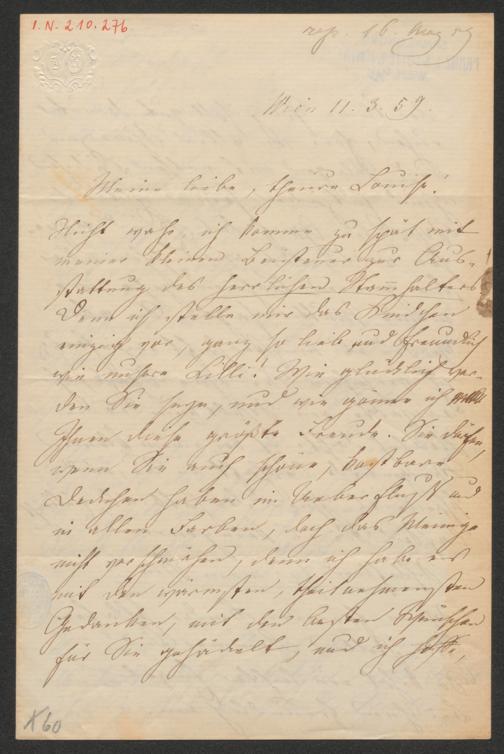 I.N. 210.276
resp. 16. May 59
Wien 11. 3. 59.
Meine liebe, theure Louise!
Nicht wahr ich komme zu spät mit
meiner kleinen Beisteuer zur Aus-
stattung des herrlichen Stammhalters
Denn ich stelle mir das Kindchen
einzig vor, ganz so lieb und freundlich
wie unsere Lilli! Wie glücklich wer-
den Sie seyn, und wie gönne ich
Ihnen diese größte Freude. Sie dürfen,
wenn Sie auch schöne, kostbare
Deckchen haben im Ueberfluß und
in allen Farben, doch das Meinige
nicht verschmähen, denn ich habe es
mit den wärmsten, theilnehmensten
Gedanken, mit den besten Wünschen
für Sie gehäkelt, und ich hoffe,
K 60